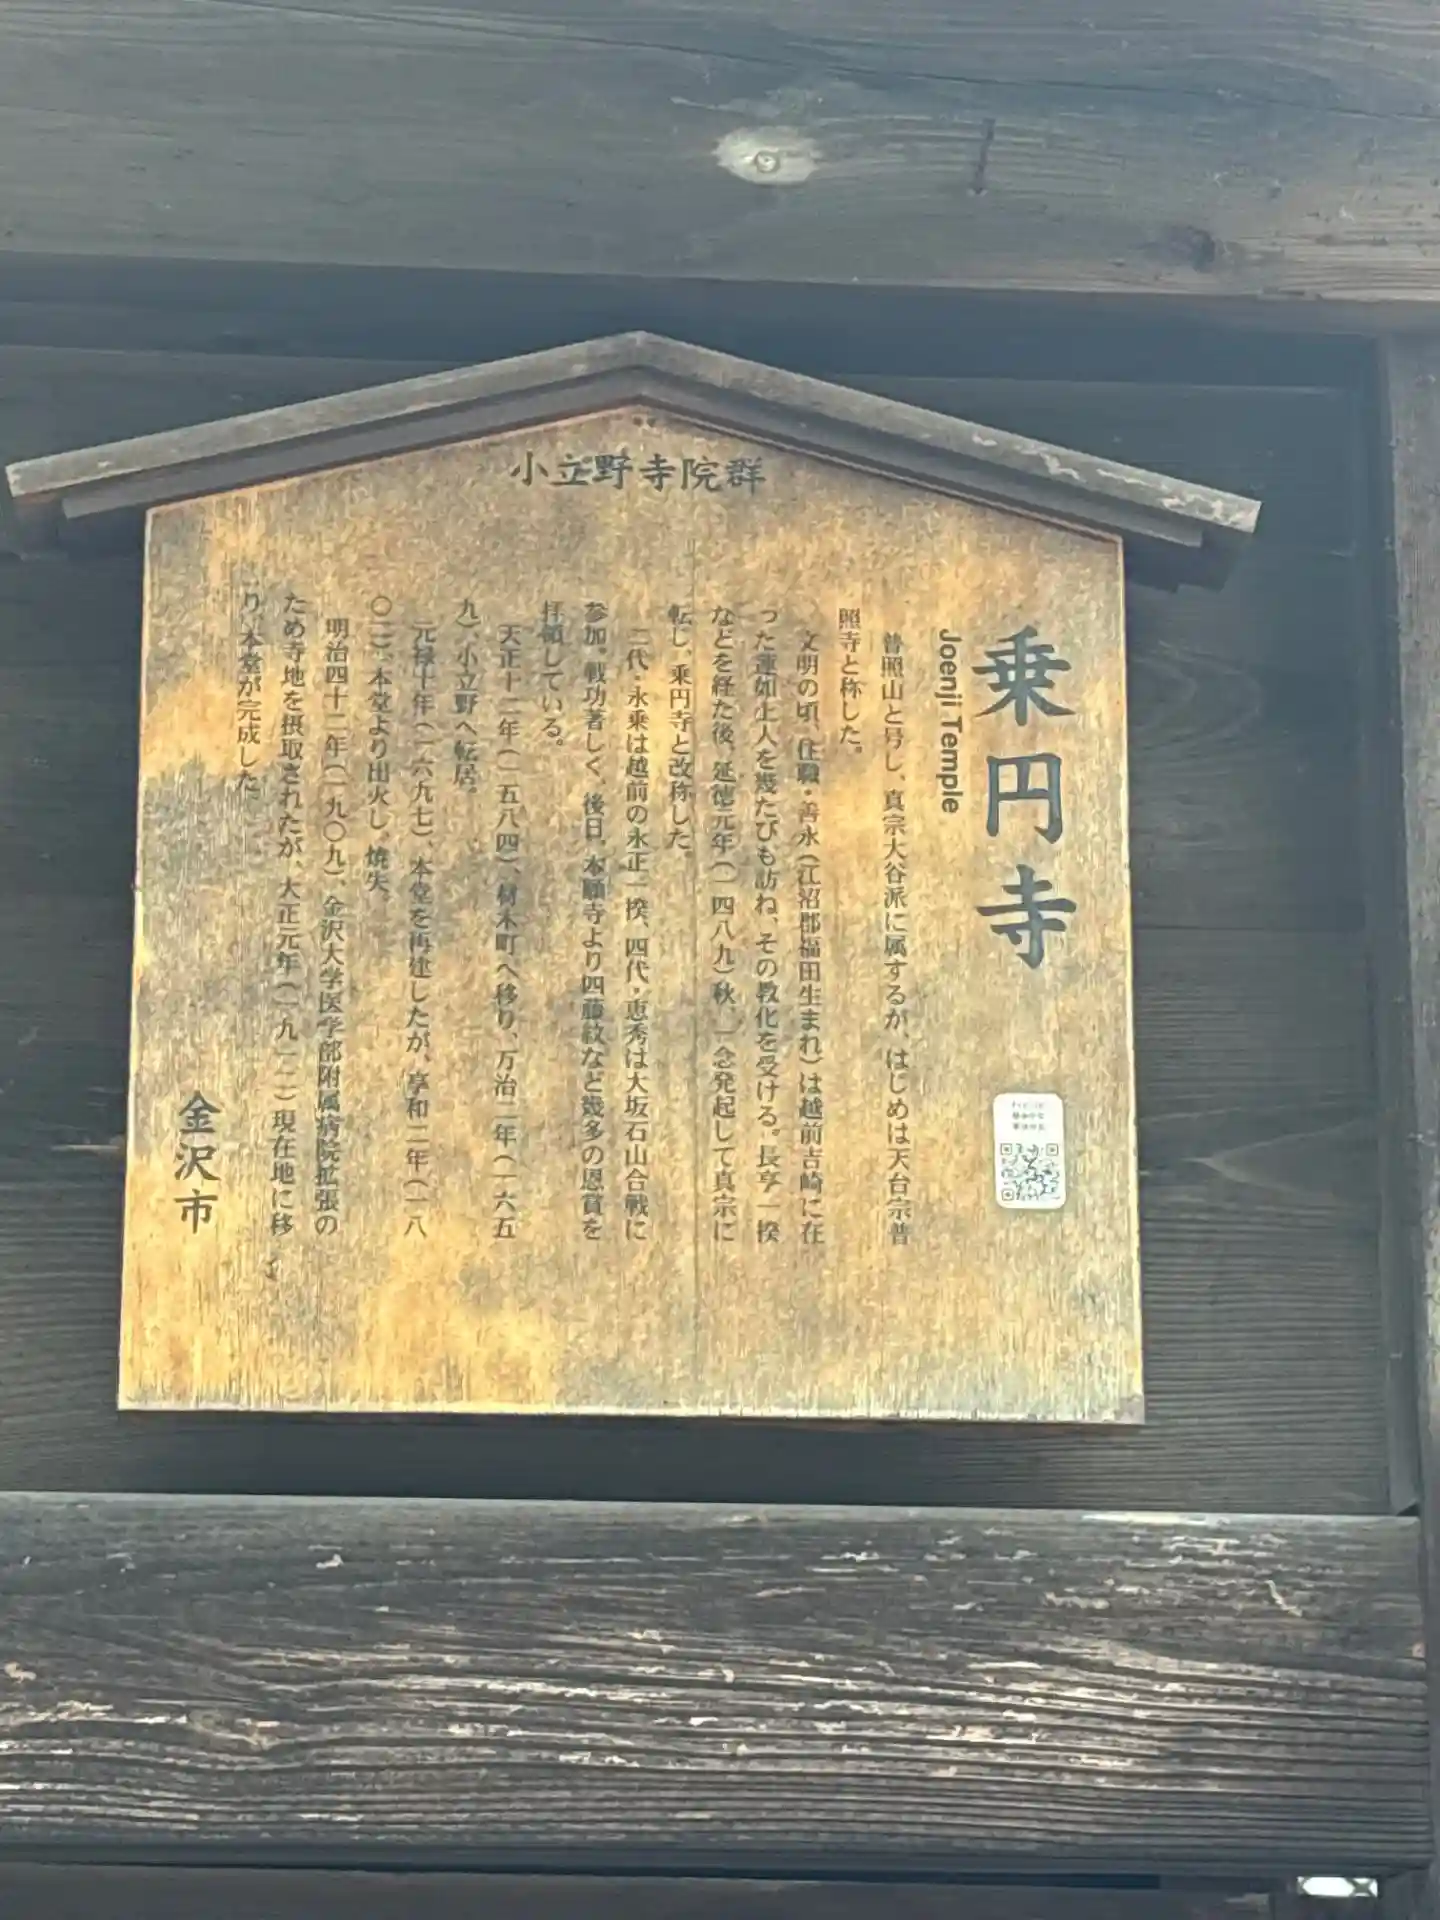 小立野寺院群
乗円寺
Joenji Temple
普照山と号し、真宗大谷派に属するが、はじめは天台宗普
照寺と称した。
文明の頃、住職・善永(江沼郡福田生まれ)は越前吉崎に在
った蓮如上人を幾たびも訪ね、その教化を受ける。長享一揆
などを経た後、延徳元年(一四八九)秋、一念発起して真宗に
転し、乗円寺と改称した。
二代・永乗は越前の永正一揆、四代・恵秀は大坂石山合戦に
参加。戦功著しく、後日、本願寺より四藤紋など幾多の恩賞を
拝領している。
天正十二年(一五八四)、材木町へ移り、万治二年(一六五
九)、小立野へ転居。
元禄十年(一六九七)、本堂を再建したが、享和二年(一八
〇二)、本堂より出火し、焼失。
明治四十二年(一九〇九)、金沢大学医学部附属病院拡張の
ため寺地を摂取されたが、大正元年(一九一二)現在地に移
り、本堂が完成した。
金沢市